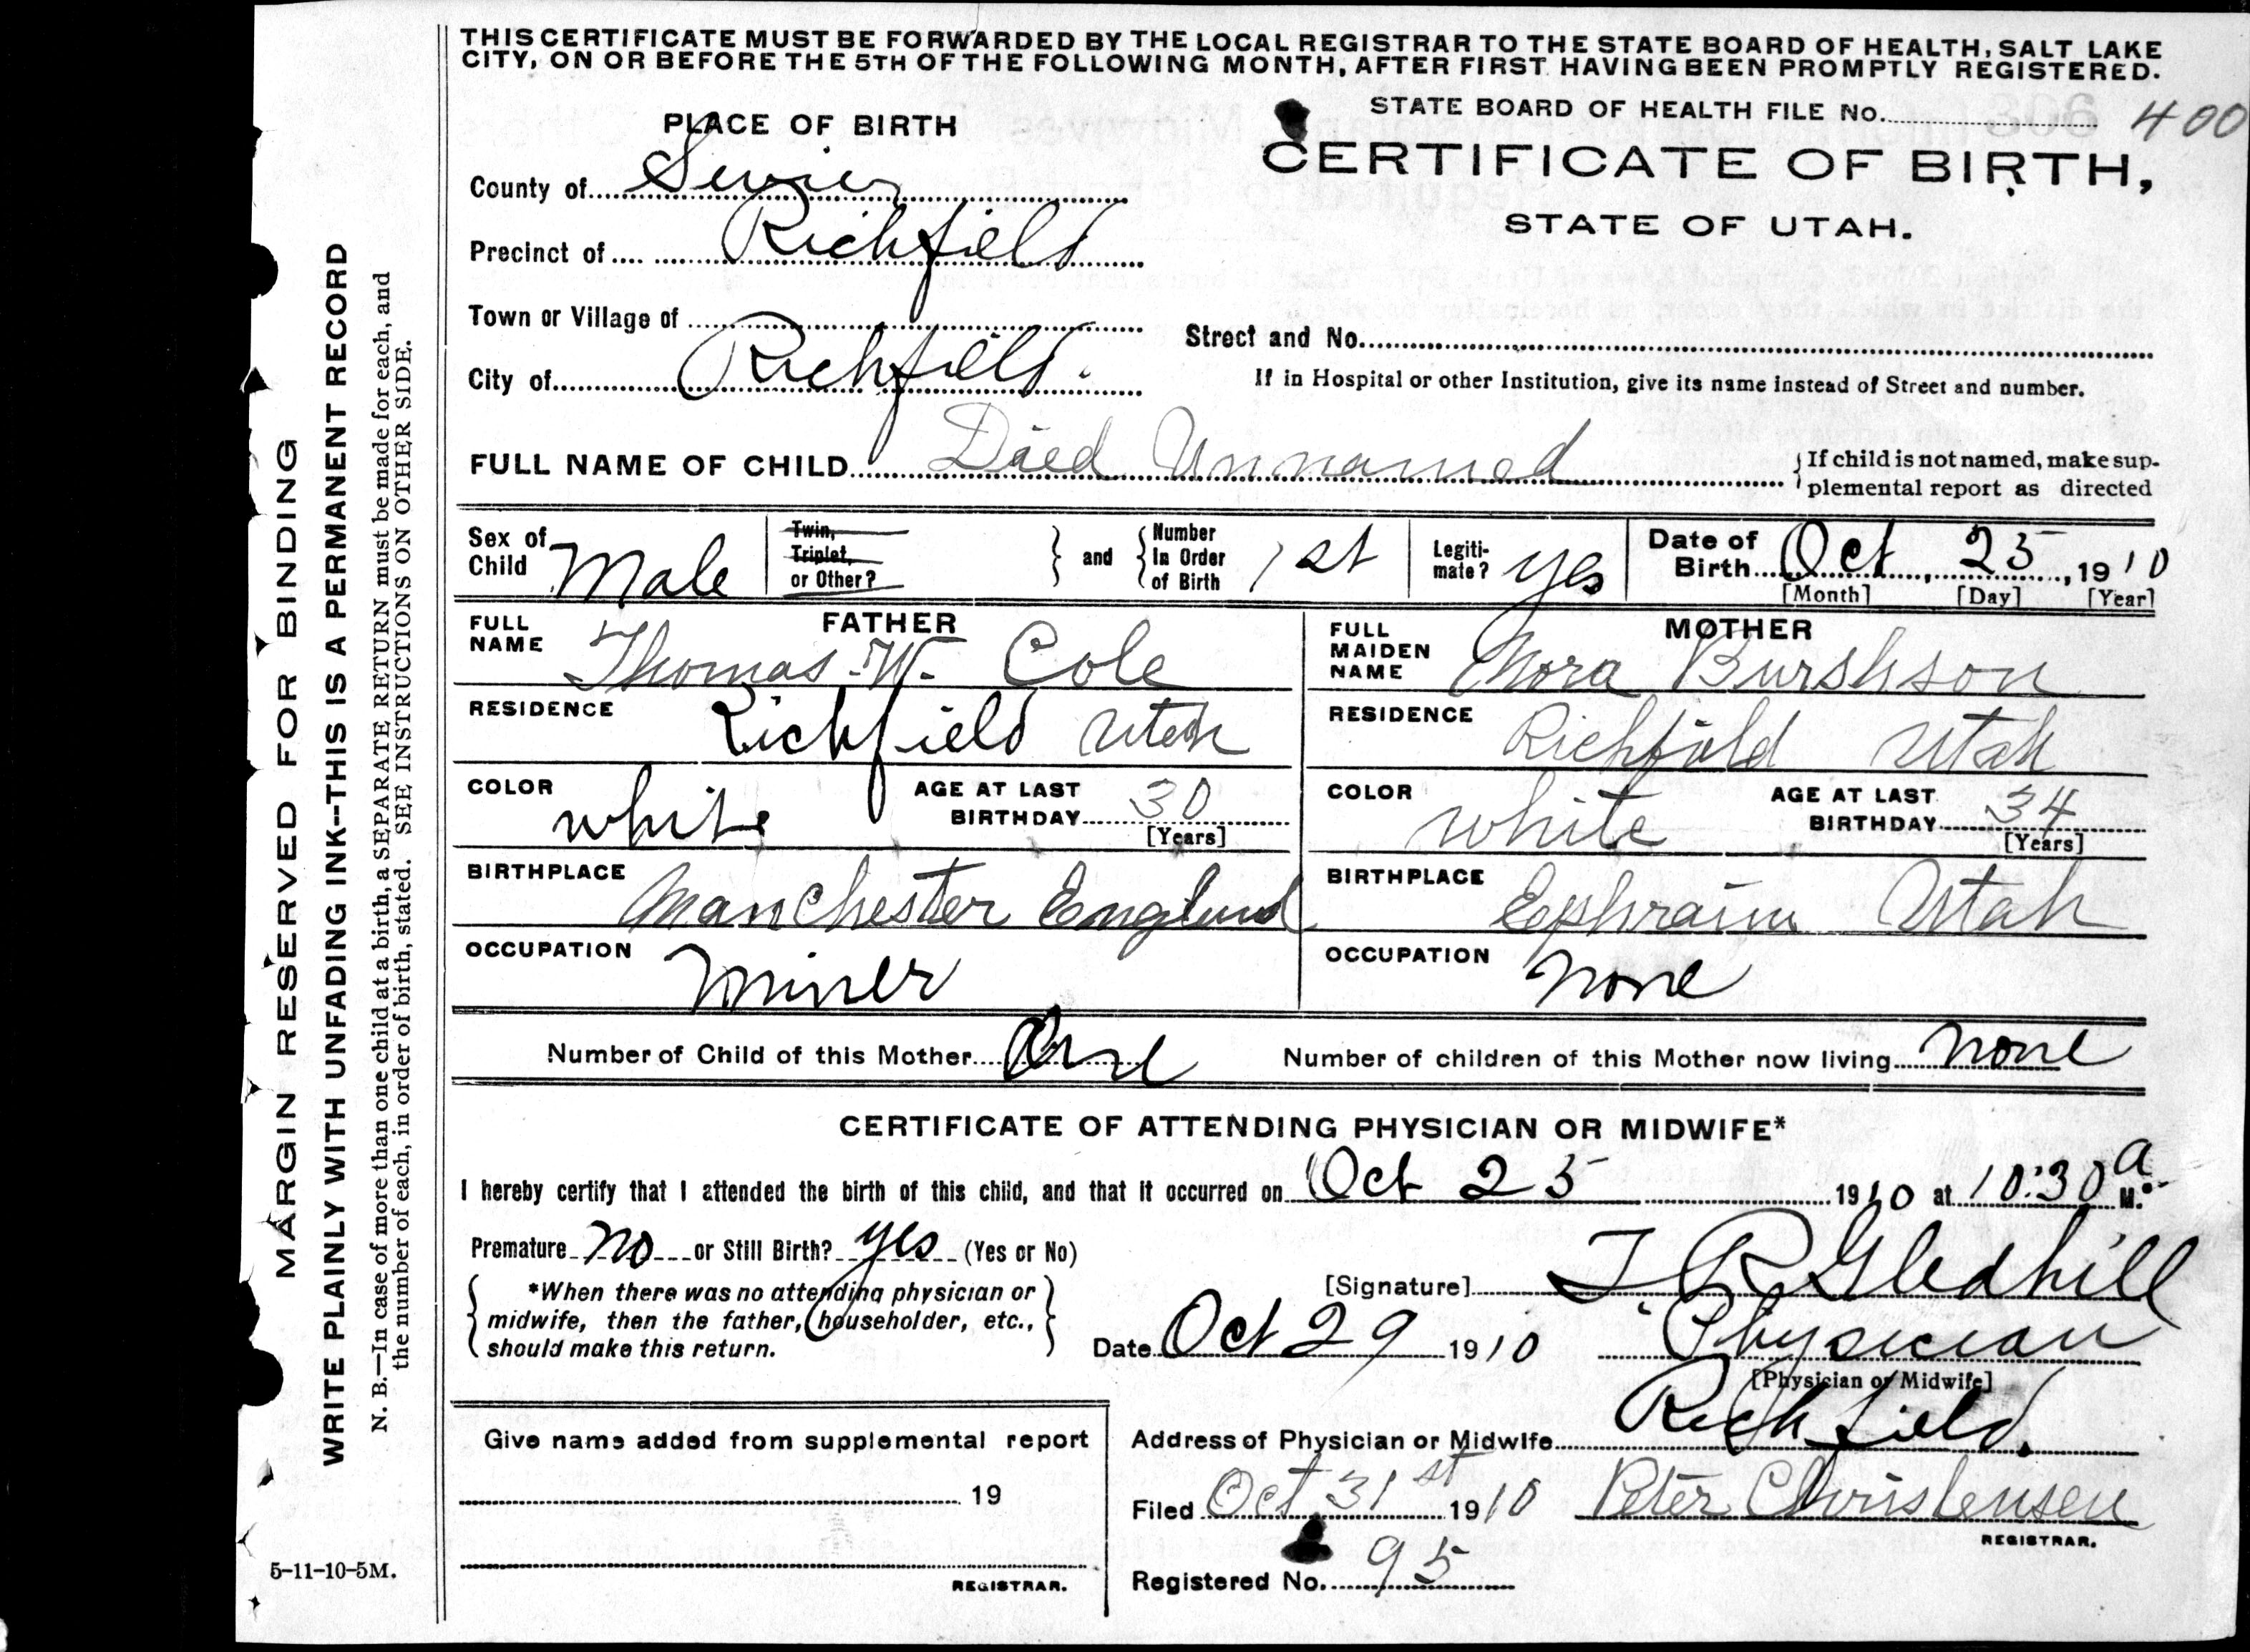 THIS CERTIFICATE MUST BE FORWARDED BY THE LOCAL REGISTRAR TO THE STATE BOARD OF HEALTH, SALT LAKE
CITY, ON OR BEFORE THE 5TH OF THE FOLLOWING MONTH, AFTER FIRST HAVING BEEN PROMPTLY REGISTERED.
STATE BOARD OF HEALTH FILE No. 306 400
PLACE OF BIRTH
CERTIFICATE OF BIRTH,
STATE OF UTAH.
County of Sevier
Precinct of Richfield
Town or Village of
Street and No.
City of Richfield.
If in Hospital or other Institution, give its name instead of Street and number.
FULL NAME OF CHILD Died Unnamed
If child is not named, make sup-
plemental report as directed
Sex of Child Male
Twin, Triplet, or Other?
and Number In Order of Birth 1st
Legiti-mate? yes
Date of Birth Oct 25, 1910
[Month] [Day] [Year]
FATHER
FULL NAME Thomas W. Cole
MOTHER
FULL MAIDEN NAME Nora
RESIDENCE Richfield Utah
RESIDENCE Richfield Utah
COLOR white AGE AT LAST BIRTHDAY 30 [Years]
COLOR white AGE AT LAST BIRTHDAY 34 [Years]
BIRTHPLACE Manchester England
BIRTHPLACE Ephraim Utah
OCCUPATION Miner
OCCUPATION none
Number of Child of this Mother One Number of children of this Mother now living none
CERTIFICATE OF ATTENDING PHYSICIAN OR MIDWIFE*
I hereby certify that I attended the birth of this child, and that it occurred on Oct 25 1910 at 10:30 a M.
Premature no or Still Birth? yes (Yes or No)
*When there was no attending physician or
midwife, then the father, householder, etc.,
should make this return.
[Signature] T R Gledhill
Date Oct 29 1910 Physician
[Physician or Midwife]
Give name added from supplemental report
19
REGISTRAR.
Address of Physician or Midwife Richfield.
Filed Oct 31st 1910 Peter Christensen
REGISTRAR.
Registered No. 95
5-11-10-5M.
MARGIN RESERVED FOR BINDING
WRITE PLAINLY WITH UNFADING INK--THIS IS A PERMANENT RECORD
N. B.—In case of more than one child at a birth, a SEPARATE RETURN must be made for each, and
the number of each, in order of birth, stated. SEE INSTRUCTIONS ON OTHER SIDE.